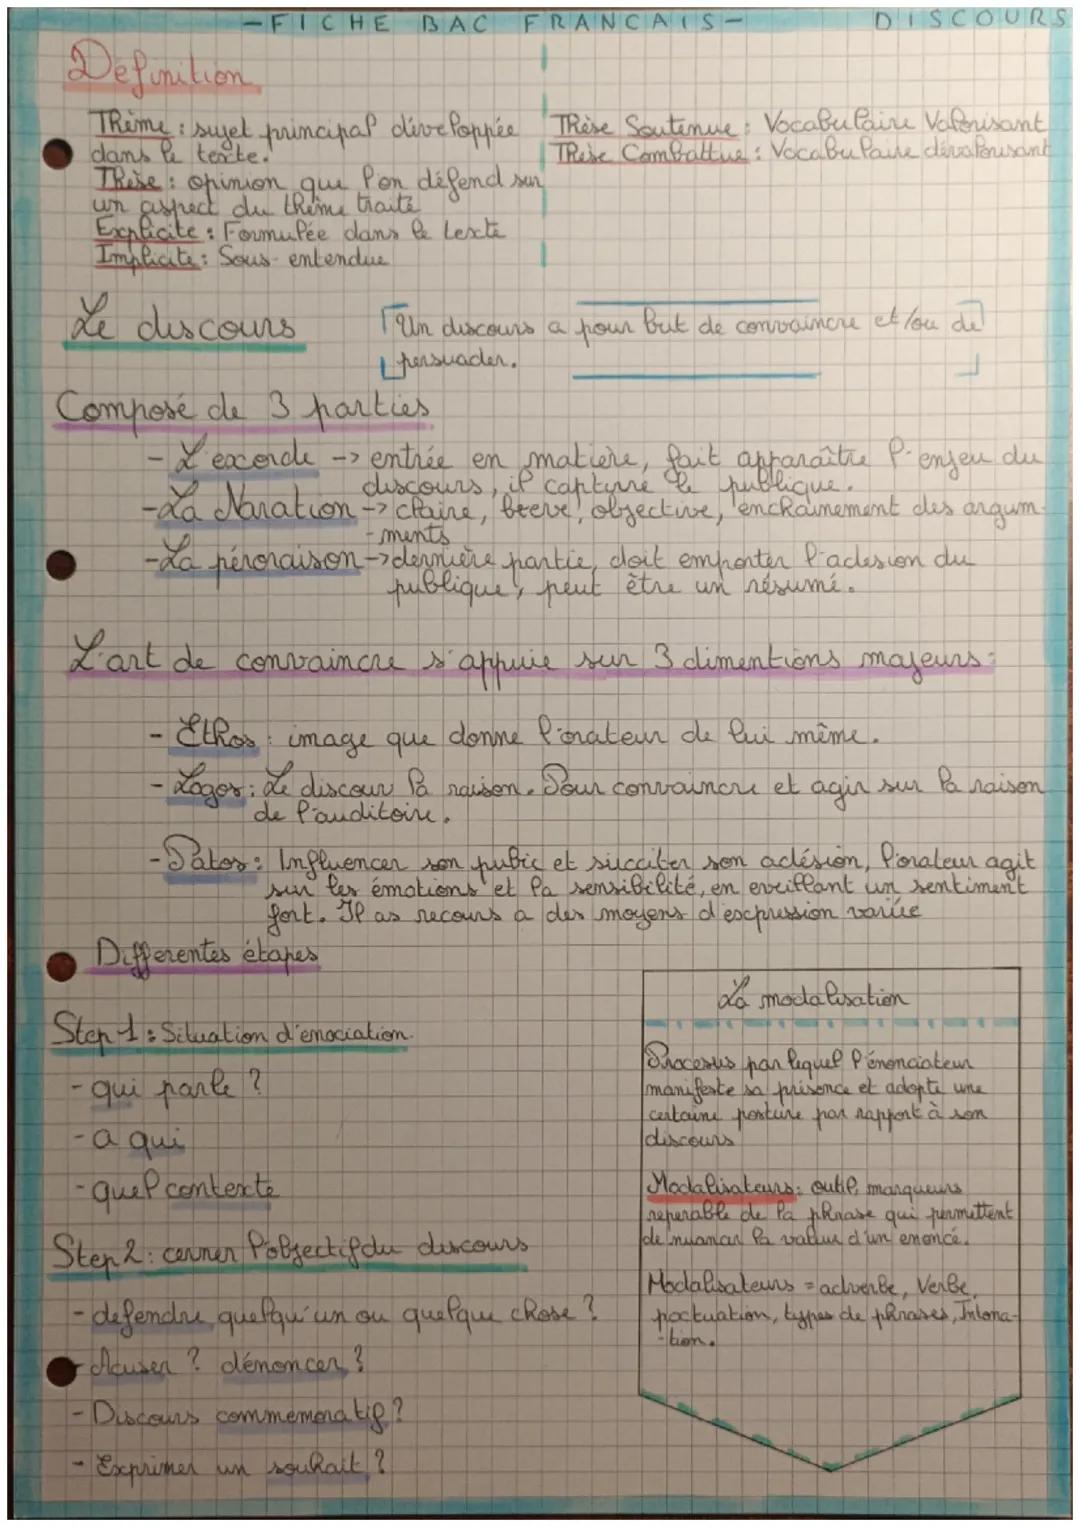 - FICHE BAC FRANCAIS -
DISCOURS
Définition
Thème : sujet principal développée
dans le texte.
Thèse : opinion que l'on défend sur
un aspect du thème traité
Explicite : Formulée dans le texte
Implicite : Sous-entendue
Thèse Soutenue : Vocabulaire Valorisant
Thèse Combattue : Vocabulaire dévalorisant
Le discours
Un discours a pour but de convaincre et/ou de
persuader.
Composé de 3 parties
- L'exorde -> entrée en matière, fait apparaître l'enjeu du
discours, il capture le publique.
- La Naration -> claire, breve, objective, enchainement des argum-
-ments
- La péroraison -> dernière partie, doit emporter l'adesion du
publique, peut être un résumé.
L'art de convaincre s'appuie sur 3 dimentions majeurs :
- Ethos : image que donne l'orateur de lui même.
- Logos : Le discour la raison. Pour convaincre et agir sur la raison
de l'auditoire.
- Patos : Influencer son pubic et succiter son adésion, l'orateur agit
sur les émotions et la sensibilité, en eveillant un sentiment
fort. Il as recours a des moyens d'expression variée
Differentes étapes
Step 1 : Situation d'enociation.
- qui parle ?
- a qui
- quel contexte
Step 2 : cerner l'objectif du discours
- defendre quelqu'un ou quelque chose ?
- Acuser ? dénoncer ?
- Discours commemoratif ?
- Exprimer un souhait ?
La modalisation
Procesus par lequel l'énonciateur
manifeste sa présence et adopte une
certaine posture par rapport à son
discours
Modalisateurs : outil, marqueurs
reperable de la phrase qui permettent
de nuancer la valeur d'un enoncé.
Modalisateurs = adverbe, Verbe,
poctuation, types de phrases, Intona-
-tion.